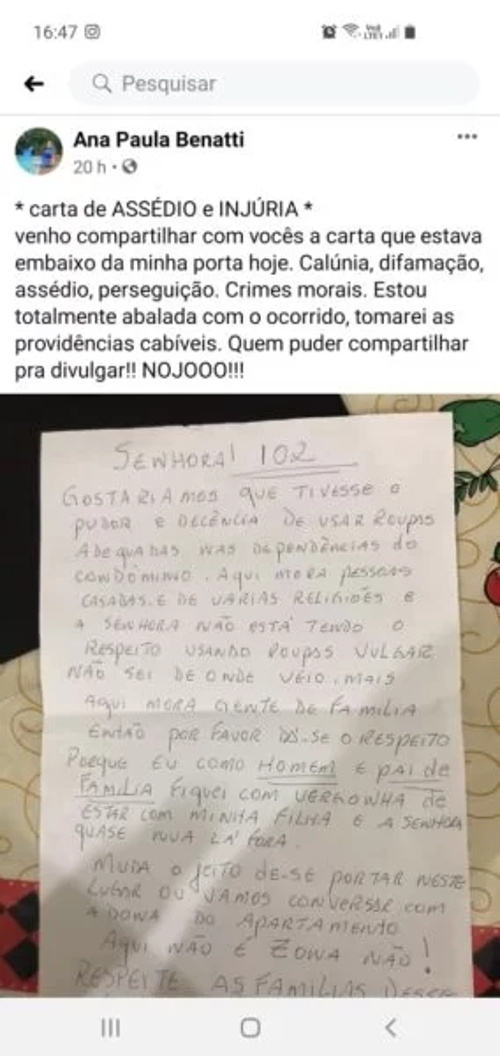 16:47
Pesquisar
Ana Paula Benatti
20 h
* carta de ASSÉDIO e INJÚRIA *
venho compartilhar com vocês a carta que estava
embaixo da minha porta hoje. Calúnia, difamação,
assédio, perseguição. Crimes morais. Estou
totalmente abalada com o ocorrido, tomarei as
providências cabíveis. Quem puder compartilhar
pra divulgar!! NOJOOO!!!
SENHORA! 102
GOSTARIAMOS QUE TIVESSE O
PUDOR E DECÊNCIA DE USAR ROUPAS
ADEQUADAS NAS DEPENDÊNCIAS DO
CONDOMINIO. AQUI MORA PESSOAS
CASADAS. E DE VARIAS RELIGIÕES E
A SENHORA NÃO ESTÁ TENDO O
RESPEITO USANDO ROUPAS VULGAR
NÃO SEI DE ONDE VEIO, MAIS
AQUI MORA GENTE DE FAMILIA
ENTÃO POR FAVOR DÊ-SE O RESPEITO
PORQUE EU COMO HOMEM E PAI DE
FAMÍLIA FIQUEI COM VERGONHA DE
ESTAR COM MINHA FILHA E A SENHORA
QUASE NUA LÁ FORA.
MUDA O JEITO DE-SE PORTAR NESTE
LUGAR OU VAMOS CONVERSAR COM
A DONA DO APARTAMENTO
AQUI NÃO É ZONA NÃO!
RESPEITE AS FAMILIAS